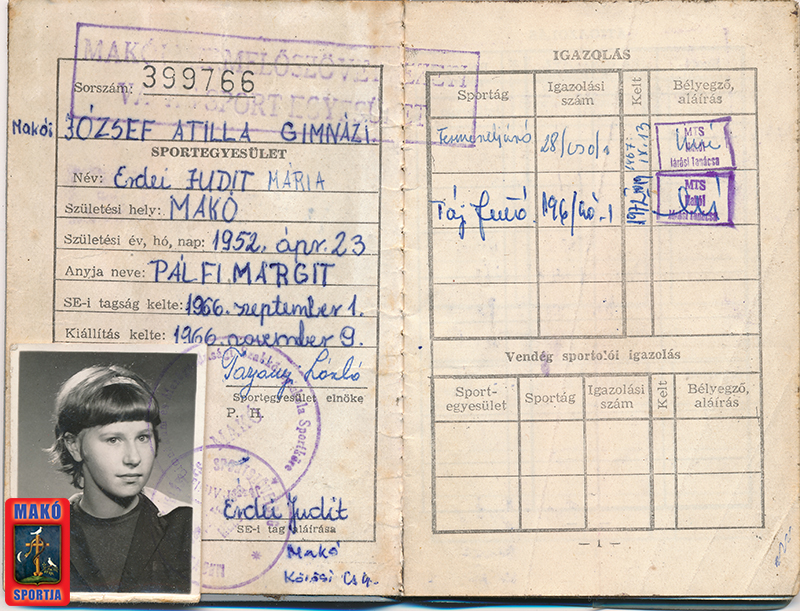 MAKÓI
Sorszám: 399766
Makói JÓZSEF ATILLA GIMNÁZI.
SPORTEGYESÜLET
Név: Erdei JUDIT MÁRIA
Születési hely: MAKÓ
Születési év, hó, nap: 1952. ápr. 23
Anyja neve: PÁLFI MARGIT
SE-i tagság kelte: 1966. szeptember 1.
Kiállítás kelte: 1966. november 9.
László
Sportegyesület elnöke
P. H.
MAKÓ
Erdei Judit
SE-i tag aláírása
Makó
Kőrösi Cs
MAKÓ
SPORTJA
IGAZOLÁS
Sportág Igazolási szám Kelt Bélyegző, aláírás
28/cso/1 1967. IX. 13 MTS Járási Tanácsa
Táj futó 196/ 1972 MTS
Vendég sportolói igazolás
Sport-egyesület Sportág Igazolási szám Kelt Bélyegző, aláírás
— 1 —